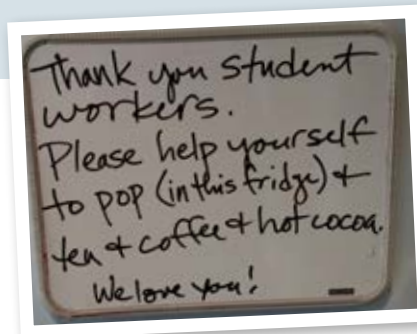 Thank you student
workers.
Please help yourself
to pop (in this fridge) +
tea + coffee + hot cocoa.
We love you!